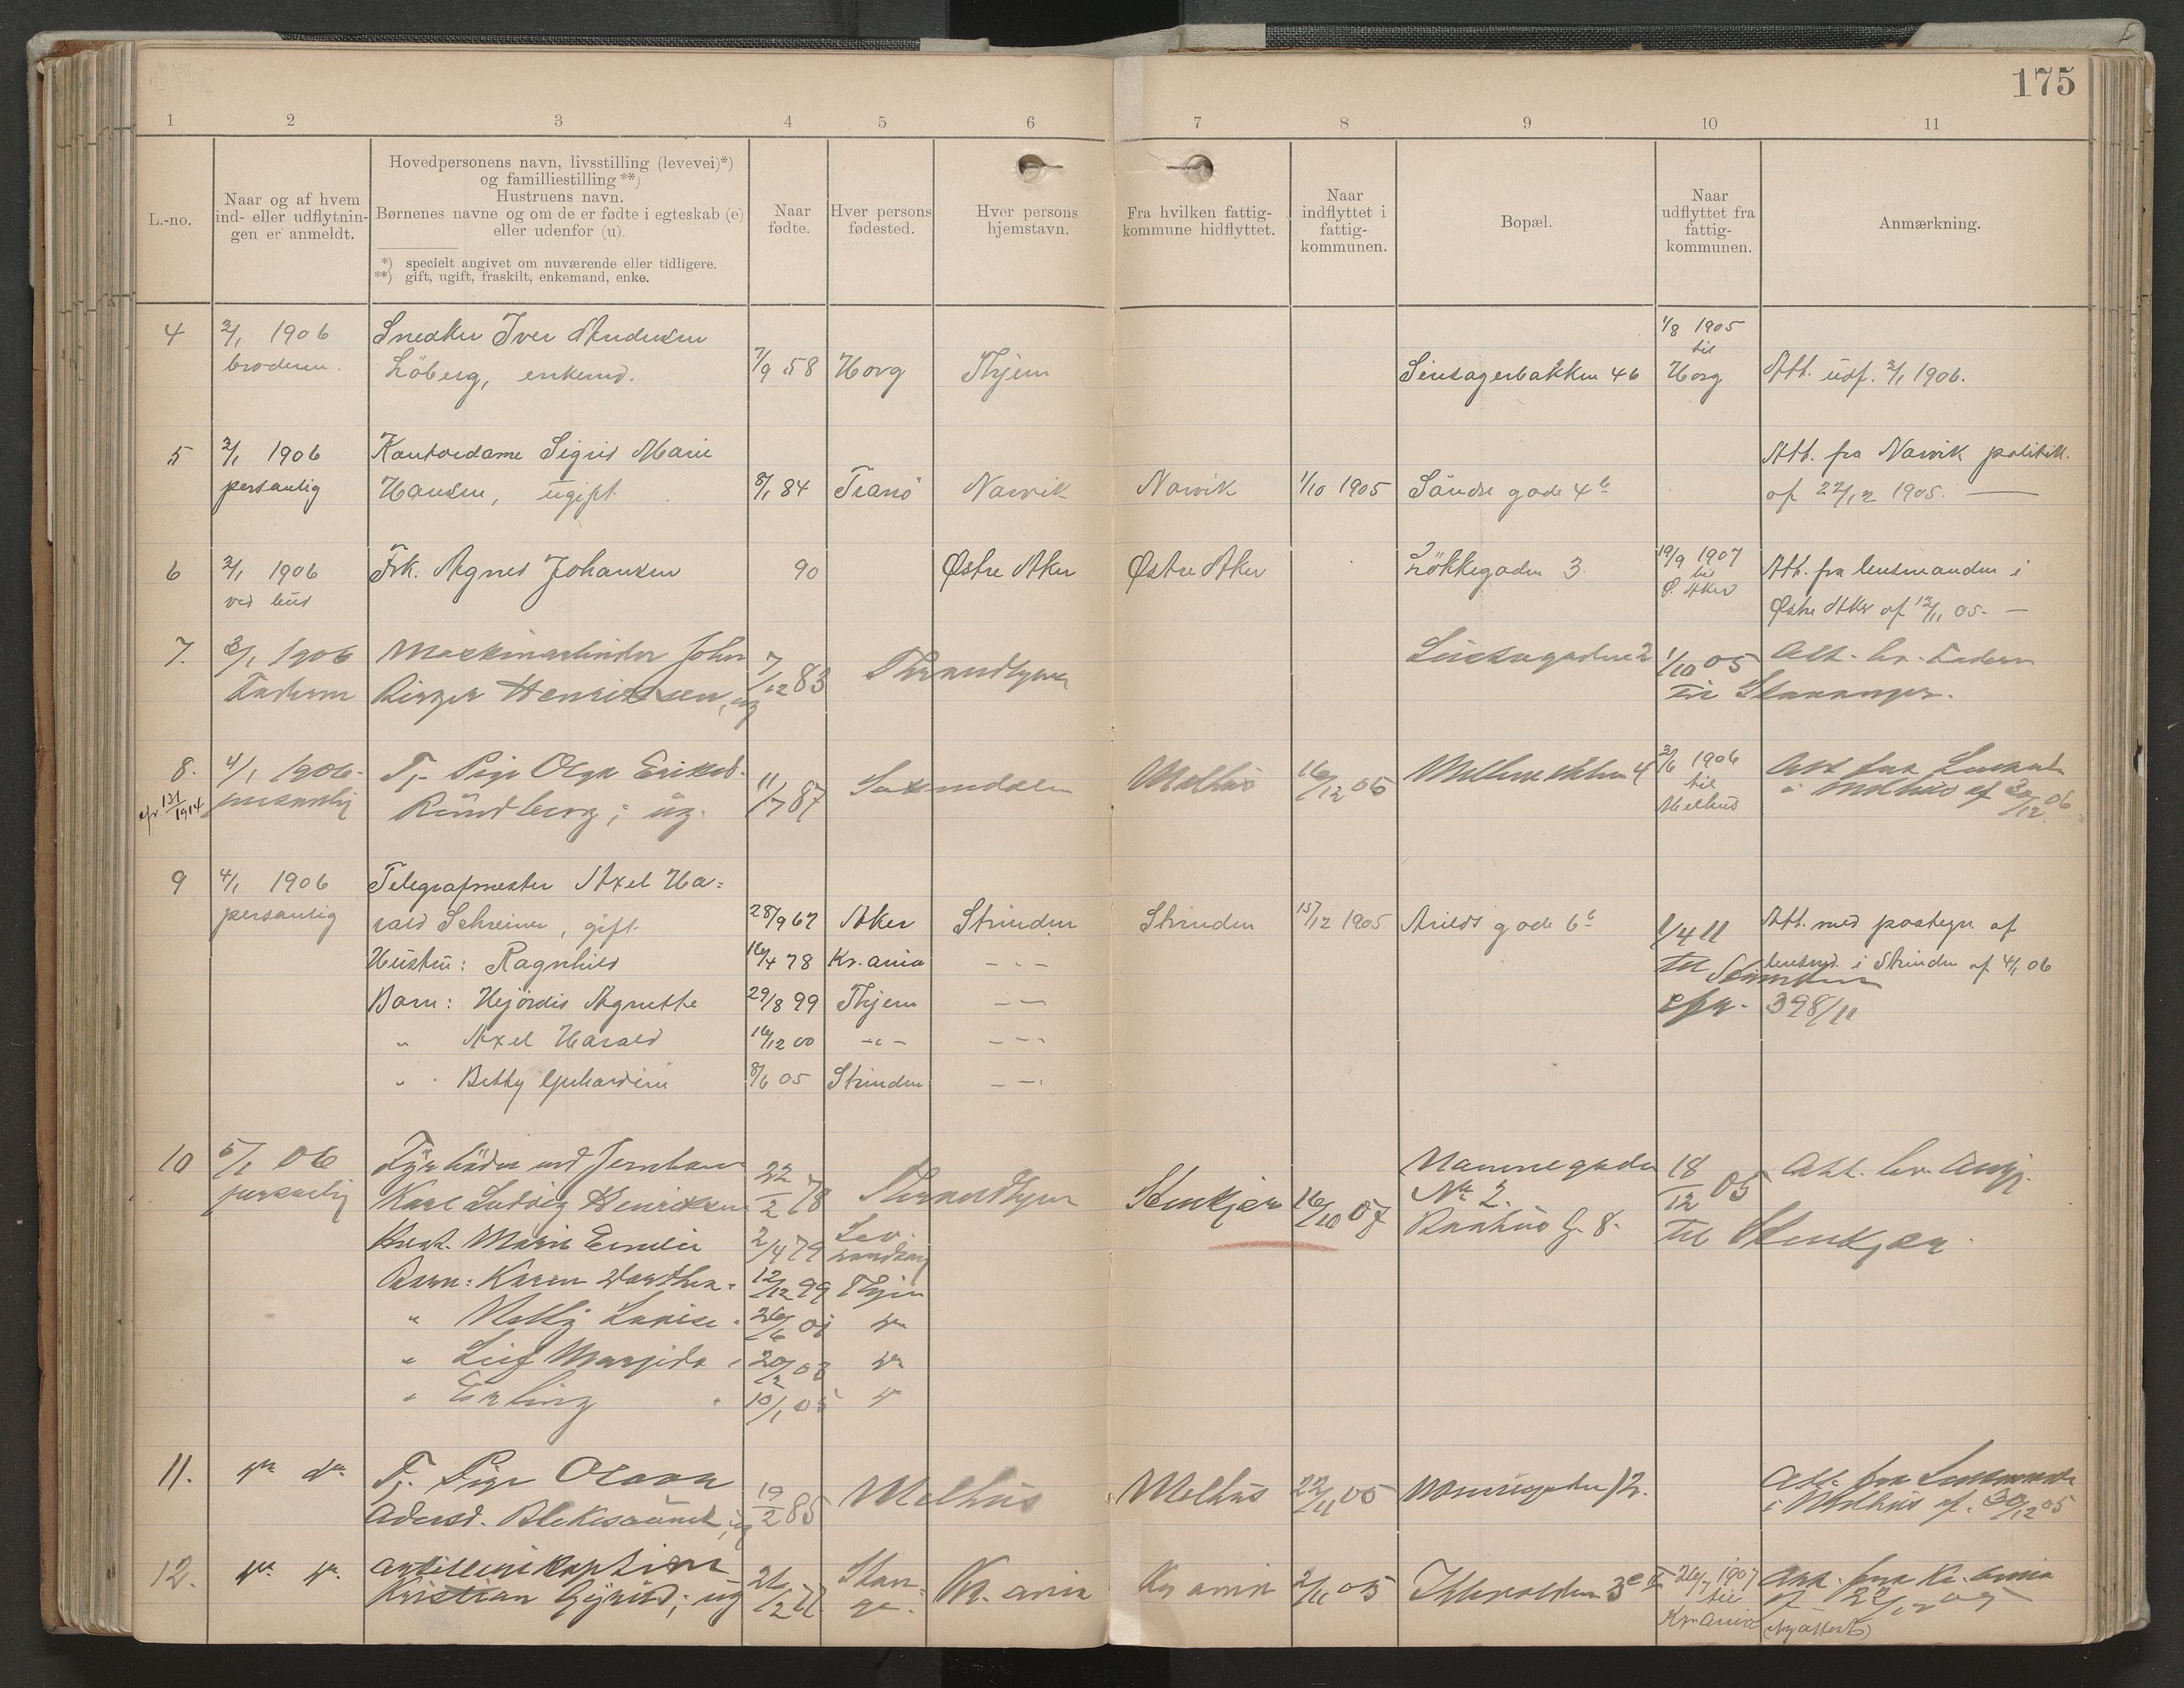 175
1 2 3 4 5 6 7 8 9 10 11
L.-no.
Naar og af hvem
ind- eller udflytnin-
gen er anmeldt.
Hovedpersonens navn, livsstilling (levevei)*)
og familliestilling **)
Hustruens navn.
Børnenes navne og om de er fødte i egteskab (e)
eller udenfor (u).
*) specielt angivet om nuværende eller tidligere.
**) gift, ugift, fraskilt, enkemand, enke.
Naar
fødte.
Hver persons
fødested.
Hver persons
hjemstavn.
Fra hvilken fattig-
kommune hidflyttet.
Naar
indflyttet i
fattig-
kommunen.
Bopæl.
Naar
udflyttet fra
fattig-
kommunen.
Anmærkning.
4 2/1 1906 Snedker Iver Andersen 1/8 1905
til
broderen. Löberg, enkemd. 7/9 58 Horg Thjem 46 Horg Att. udf. 2/1 1906.
5 2/1 1906 Kontordame Sigrid Marie Att. fra Narvik politik.
personlig Hansen, ugift 8/1 84 Tranö Narvik Narvik 1/10 1905 Söndre gade 4 b af 22/12 1905.
6 2/1 1906 Frk. Agnes Johansen 90 Østre Aker Østre Aker Lökkegaden 3 19/9 1907 Att. fra lensmanden i
ved bud til
Ø. Aker Østre Aker af 12/11 05.
7. 3/1 1906 Maskinarbeider John 7/12 83 Throndhjem 2 1/10 05 Att. br. Faderen
Faderen Birger Henriksen, ug til Stavanger.
8. 4/1 1906. Tj. Pige Olga Eriksd. 11/7 87 Melhus 16/12 05 4 2/6 1906 Att fra Lensmd.
cfr. 131/1914 personlig Rundberg; ug. til
Melhus i Melhus af 30/12 06.
9 4/1 1906 Telegrafmester Axel Ha=
personlig rald Schreiner, gift 28/9 67 Aker Strinden Strinden 15/12 1905 Arilds gade 6 c 1/4 11 Att. med paategn. af
Hustru: Ragnhild 16/4 78 Kr.ania - - - til Strinden lensmd. i Strinden af 4/1 06
Barn: Hejördis Agnethe 29/8 99 Thjem - - cfr. 398/11
" Axel Harald 16/12 00 - " - - - -
" Betty Gerhardine 8/6 05 Strinden - - -
10 5/1 06 Fyrbøder ved Jernban Nannegaden 18/12 05 Att. br. Ankj.
personlig Karl Ludvig Henriksen 22/2 78 Throndhjem Stenkjær 16/10 07 No 2. til Stenkjær
Hust. Marie Emelie 2/4 79 Lev Bakhus G. 8.
Barn: Karen Dorthea 12/12 99 Thjem
" Nelly Lovise 26/6 01 do
" Leif Margido 20/2 03 do
" Erling 10/1 05 do
11. do do Tj. Pige Olava 19/2 85 Melhus Melhus 22/11 05 12. Att. fra Lensmande
Adersd. ; ug i Melhus af. 30/12 05
12. do do Artillerikaptein 26/2 Stan=
ge. Kr. ania Kr ania 2/11 05 Ihlevolden 3 c II 26/7 1907
til
Kr.ania Att. fra Kr. ania
Kristian ; ug af 22/12 05
(ny attest)